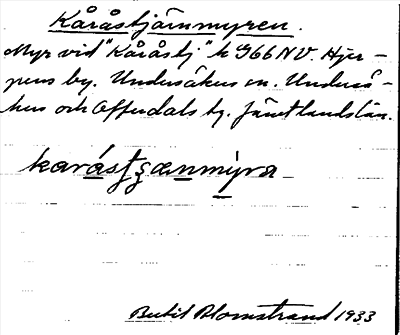 Kåråstjärnmyren.
Myr vid "Kåråstj" k 966 NV. Hjer-
pens by. Undersåkers sn. Underså-
kers och Offerdals tg. Jämtlands län.
karástʃænmýra
Bertil Blomstrand 1933